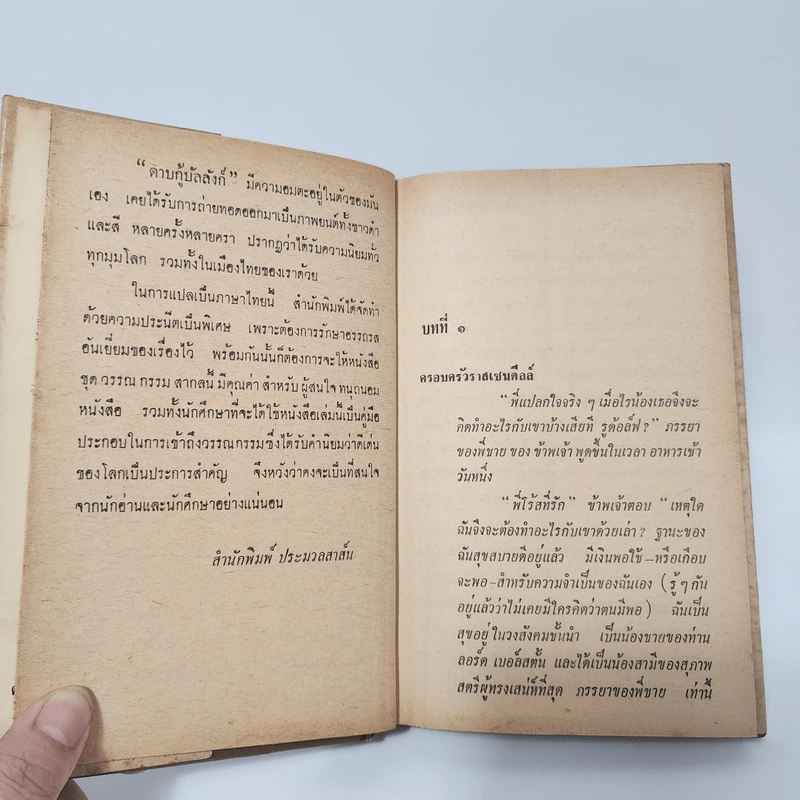 “ดาบกู้บัลลังก์” มีความอมตะอยู่ในตัวของมัน
เอง เคยได้รับการถ่ายทอดออกมาเป็นภาพยนต์ทั้งขาวดำ
และสี หลายครั้งหลายครา ปรากฏว่าได้รับความนิยมทั่ว
ทุกมุมโลก รวมทั้งในเมืองไทยของเราด้วย
ในการแปลเป็นภาษาไทยนี้ สำนักพิมพ์ได้จัดทำ
ด้วยความประณีตเป็นพิเศษ เพราะต้องการรักษาอรรถรส
อันเยี่ยมของเรื่องไว้ พร้อมกันนั้นก็ต้องการจะให้หนังสือ
ชุด วรรณ กรรม สากลนี้ มีคุณค่า สำหรับ ผู้สนใจ ทนุถนอม
หนังสือ รวมทั้งนักศึกษาที่จะได้ใช้หนังสือเล่มนี้เป็นคู่มือ
ประกอบในการเข้าถึงวรรณกรรมซึ่งได้รับคำนิยมว่าดีเด่น
ของโลกเป็นประการสำคัญ จึงหวังว่าคงจะเป็นที่สนใจ
จากนักอ่านและนักศึกษาอย่างแน่นอน
สำนักพิมพ์ ประมวลสาส์น
บทที่ ๑
ครอบครัวราสเซนดีลล์
“พี่แปลกใจจริง ๆ เมื่อไรน้องเธอจึงจะ
คิดทำอะไรกับเขาบ้างเสียที รูด้อล์ฟ?” ภรรยา
ของพี่ชาย ของ ข้าพเจ้า พูดขึ้นในเวลา อาหารเช้า
วันหนึ่ง
“พี่โร้สที่รัก” ข้าพเจ้าตอบ “เหตุใด
ฉันจึงจะต้องทำอะไรกับเขาด้วยเล่า? ฐานะของ
ฉันสุขสบายดีอยู่แล้ว มีเงินพอใช้—หรือเกือบ
จะพอ—สำหรับความจำเป็นของฉันเอง (รู้ ๆ กัน
อยู่แล้วว่าไม่เคยมีใครคิดว่าตนมีพอ) ฉันเป็น
สุขอยู่ ในวงสังคมชั้นนำ เป็นน้องชายของท่าน
ลอร์ด เบอล์สตั้น และได้เป็นน้องสามีของสุภาพ
สตรีผู้ทรงเสน่ห์ที่สุด ภรรยาของพี่ชาย เท่านี้